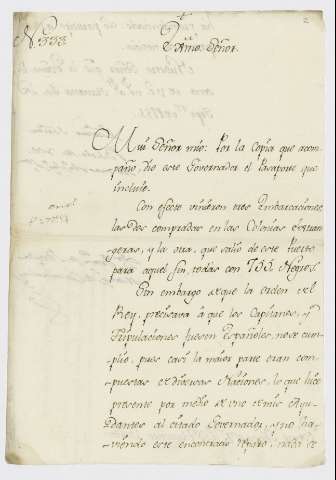 N.º 333.
Exmo. Señor.
Mui Señor mio: Por la Copia que acom-
paño, dio este Governador el Pasaporte que
incluie.
Con efecto vinieron tres Embarcaciones
las dos compradas en las Colonias extran-
geras, y la otra, que salió de este Puerto
para aquel fin todas con 733. Negros.
Sin embargo de que la orden del
Rey, precisava á que los Capitanes, y
Tripulaciones fuesen Españoles, no se cum-
plio, pues casi la maior parte eran com-
puestas de diversas Naciones, lo que hice
presente por medio de uno de mis Ayu-
dantes al citado Governador, y no ha-
viendo este encontrado reparo, nada se